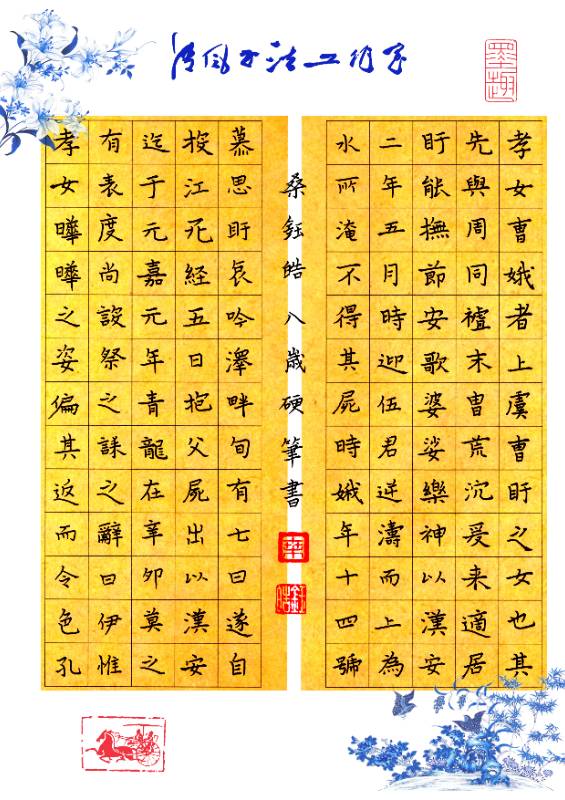 清风书法工作室
墨趣
孝女曹娥者上虞曹盱之女也其
先與周同禭末曺荒沉爰来適居
盱能撫節安歌婆娑樂神以漢安
二年五月時迎伍君逆濤而上為
水所淹不得其屍時娥年十四號
桑鈺皓八歲硬筆書
慕思盱哀吟澤畔旬有七日遂自
投江死経五日抱父屍出以漢安
迄于元嘉元年青龍在辛卯莫之
有表度尚設祭之誄之辭曰伊惟
孝女曄曄之姿偏其返而令色孔